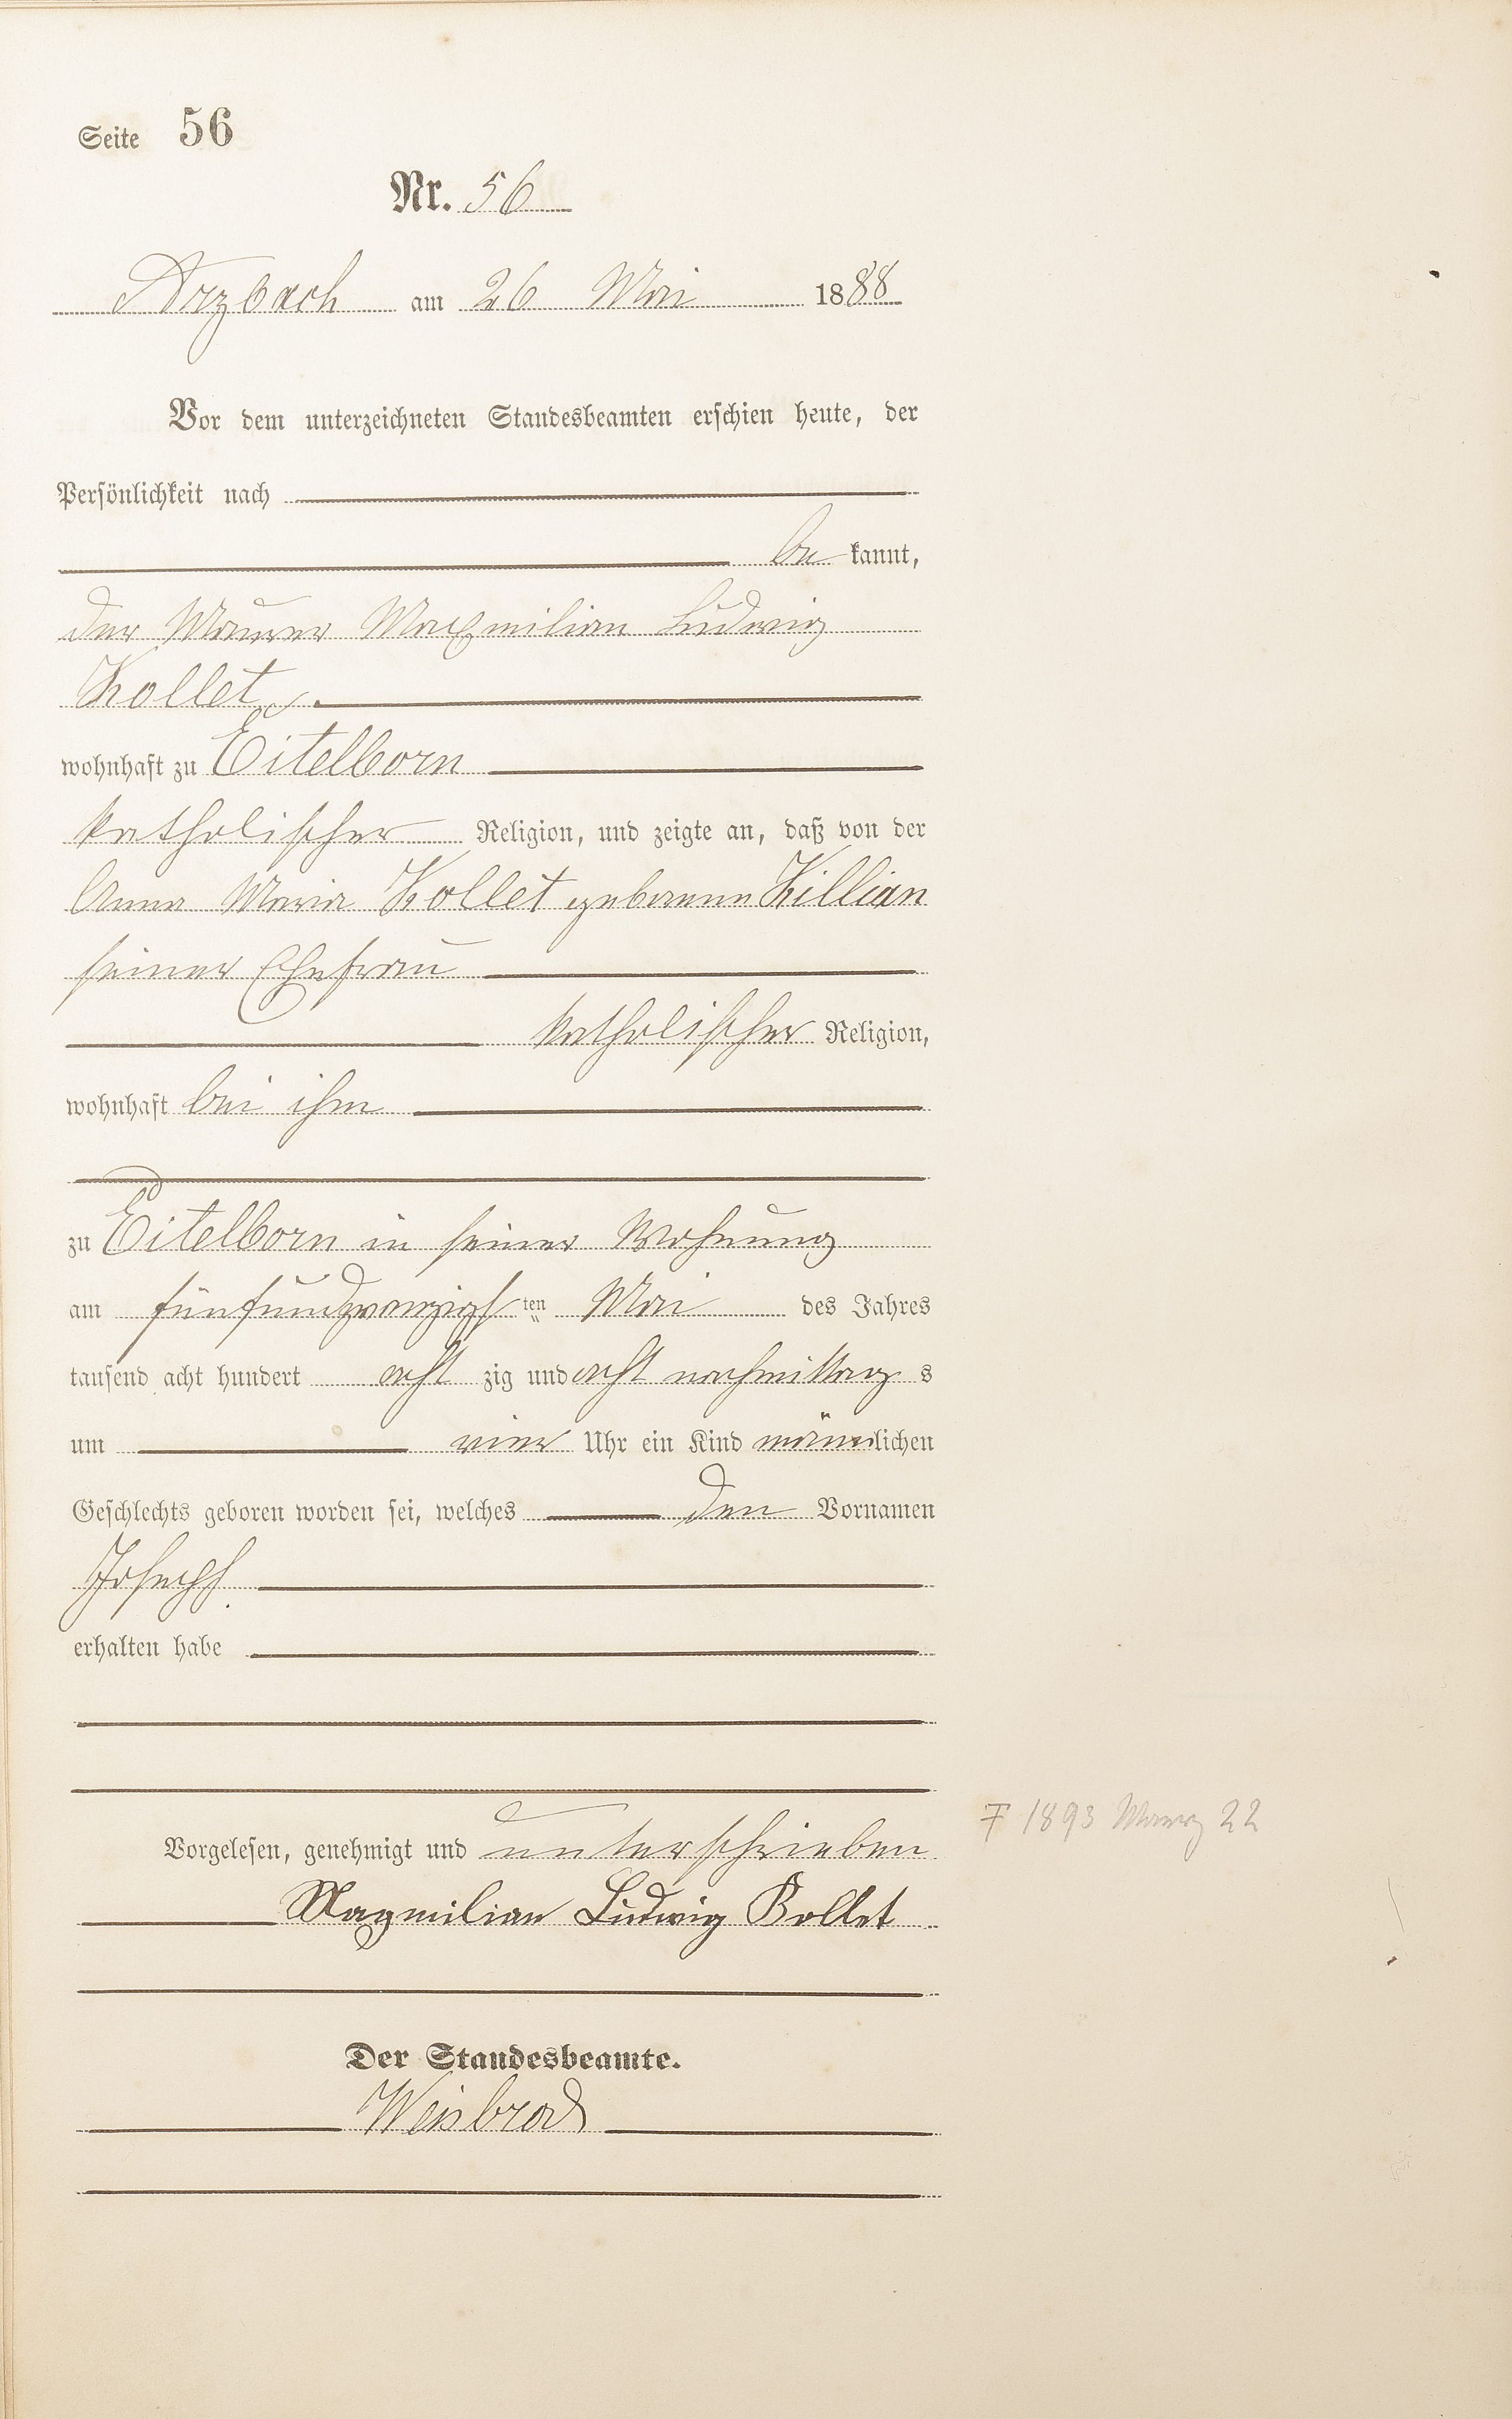 Seite 56
Nr. 56
Arzbach am 26 Mai 1888
Vor dem unterzeichneten Standesbeamten erschien heute, der
Persönlichkeit nach
be kannt,
der Maurer Maxmilian Ludwig
Kollet
wohnhaft zu Eitelborn
katholischer Religion, und zeigte an, daß von der
Anna Maria Kollet geborene Killian
seiner Ehefrau
katholischer Religion,
wohnhaft bei ihm
zu Eitelborn in seiner Wohnung
am fünfundzwanzigsten Mai des Jahres
tausend acht hundert acht zig und acht nachmittags
um vier Uhr ein Kind männlichen
Geschlechts geboren worden sei, welches den Vornamen
Joseph
erhalten habe
Vorgelesen, genehmigt und unterschrieben
Maxmilian Ludwig Kollet
† 1893 März 22
Der Standesbeamte.
Weisbrod